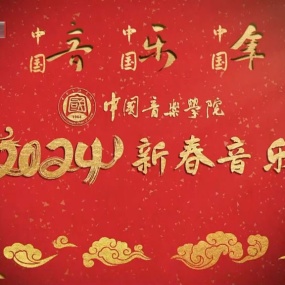 中国音 中国乐 中国年
中国音樂學院
2024新春音乐